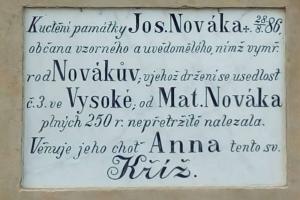 Kuctění památky Jos. Nováka +. 28/8. 86,
občana vzorného a uvědomělého, nímž vymř.
rod Novákův, v jehož držení se usedlost
č. 3. ve Vysoké, od Mat. Nováka
plných 250 r. nepřetržitě nalezala.
Věnuje jeho choť Anna tento sv.
Kříž.